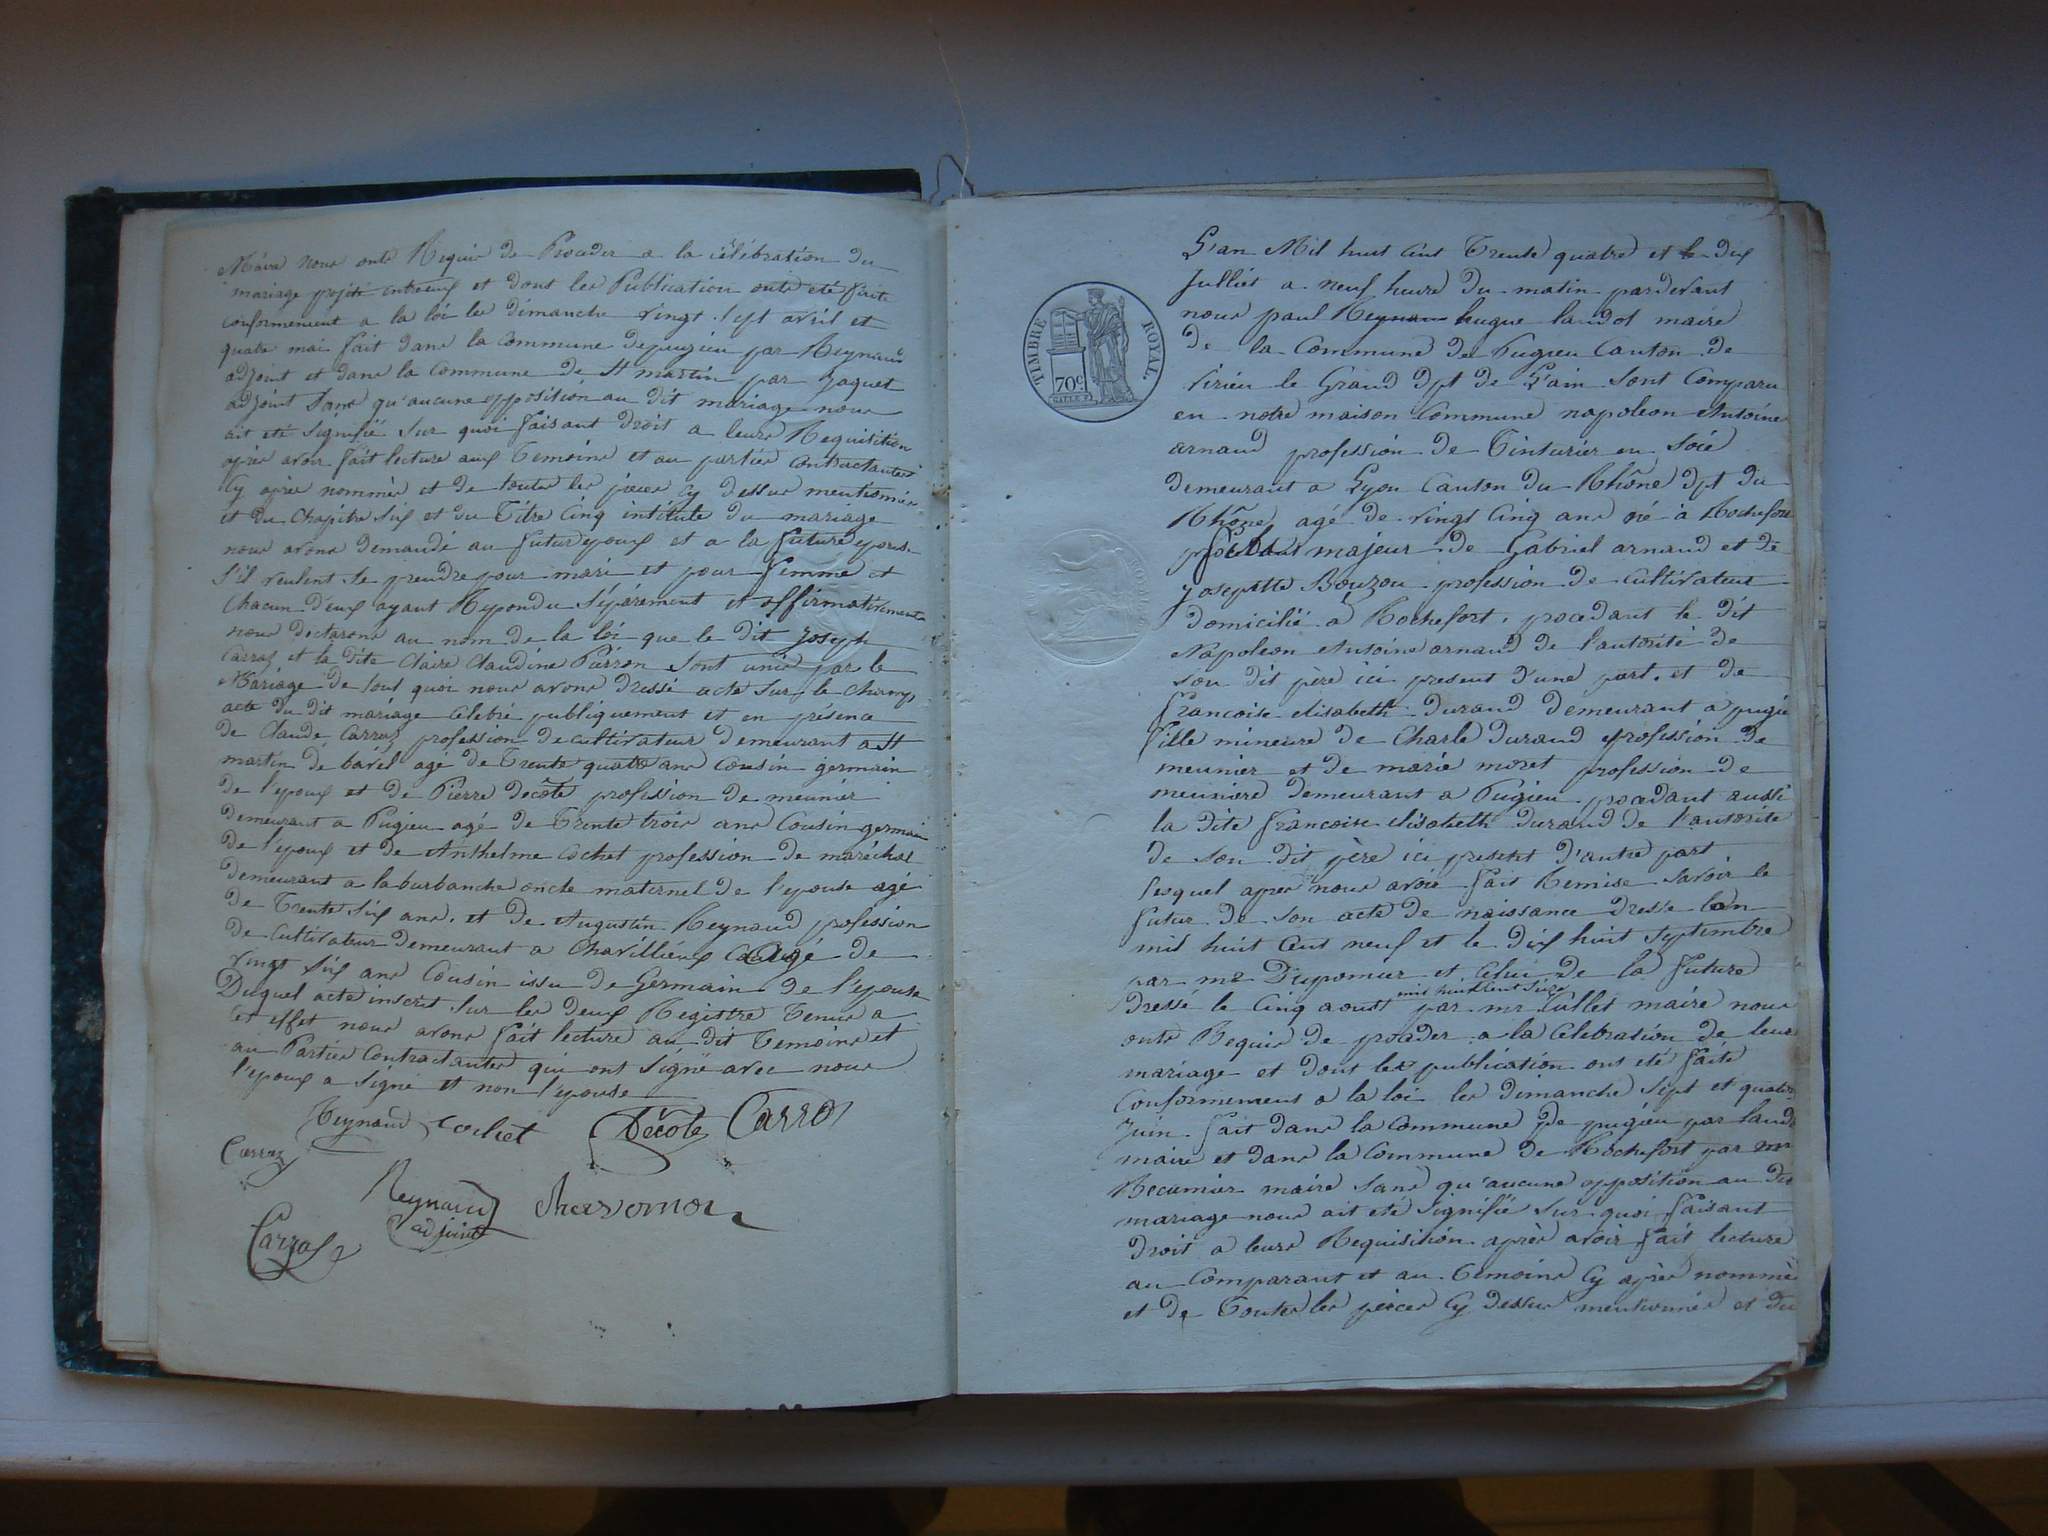 Maire nous onts Requis de Proceder a la célébration du
mariage projeté entreeux et dont les Publication onts été faite
conformement a la loi les dimanche vingt sept avril et
quatre mai fait dans la Commune de pugieu par Reynaud
adjoint et dans la Commune de St martin par Jaquet
adjoint Sans qu'aucune opposition au dit mariage nous
ait eté Signifié Sur quoi faisant Droit a leurs Requisition
après avoir fait lecture aux Temoins et au parties contractantes
Cy après nommés et de toutes les pieces Cy dessus mentionnés
et du Chapitre Six et du Titre Cinq intitule du mariage
nous avons Demandé au futur epoux et a la future epouse
S'il veulent Se prendre pour mari et pour femme et
Chacun d'eux ayant Repondu Séparement et affirmativement
nous declarons au nom de la loi que le dit Joseph
Carraz et la dite Claire Claudine Pierron Sont unis par le
Mariage de tout quoi nous avons Dressé acte Sur le champs
acte du dit mariage Celebré publiquement et en présence
de Claude Carraz profession de cultivateur demeurant a St
martin de bavel agé de Trente quatre ans Cousin germain
de l'epoux et de Pierre Decôte profession de meunier
demeurant a Pugieu agé de Trente trois ans Cousin germain
de l'epoux et de Anthelme Cochet profession de maréchal
demeurant a la burbanche oncle maternel de l'epouse agé
de Trente Six ans. et de Augustin Reynaud profession
de Cultivateur demeurant a Chavillieux agé de
vingt Six ans Cousin issu de Germain de l'epouse
Duquel acte inscrit Sur les deux Registre Tenus a
cet effet nous avons fait lecture au dit Temoins et
au Parties Contractantes qui ont Signé avec nous
l'epoux a Signé et non l'epouse
Reynaud Cochet Décote Carraz
Carraz
Reynaud
adjoint
Carraz
TIMBRE ROYAL.
70c
L'an Mil huit Cent Trente quatre et le dix
Julliet a neuf heure du matin pardevant
nous paul hugue landot maire
de la Commune de Pugieu Canton de
Virieu le Grand Dpt de L'ain Sont Comparu
en notre maison Commune napoleon Antoine
arnaud profession de Tinturier en Soie
demeurant a Lyon Canton du Rhône Dpt du
Rhône agé de vingt Cinq ans né à Rochefort
fils majeur de Gabriel arnaud et de
Josephte Bouzon profession de Cultivateur
domicilié a Rochefort. procedant le dit
Napoleon Antoine arnaud de l'autorité de
son dit père ici present d'une part. et de
francoise elisabeth durand demeurant a pugieu
fille mineure de Charle durand profession de
meunier et de marie moret profession de
meunière demeurant a Pugieu procedant aussi
la dite francoise elisabeth durand de l'autorité
de son dit père ici present d'autre part
lesquel apres nous avoir fait Remise Savoir le
futur de son acte de naissance dressé lan
mil huit Cent neuf et le dix huit Septembre
par mr Dupomier et Celui de la future
mil huit Cent Seize
dressé le Cinq aoust par mr Cullet maire nous
onts Requis de proceder a la Celebration de leur
mariage et dont les publication ont eté faite
Conformement a la loi les dimanche Sept et quatorze
Juin fait dans la Commune de pugieu par landot
maire et dans la Commune de Rochefort par mr
Recamier maire Sans qu'aucune opposition au dit
mariage nous ait eté Signifié Sur quoi faisant
droit a leurs Requisition après avoir fait lecture
au Comparant et au Temoins Cy après nommés
et de Toutes les pièces Cy dessus mentionnés et du